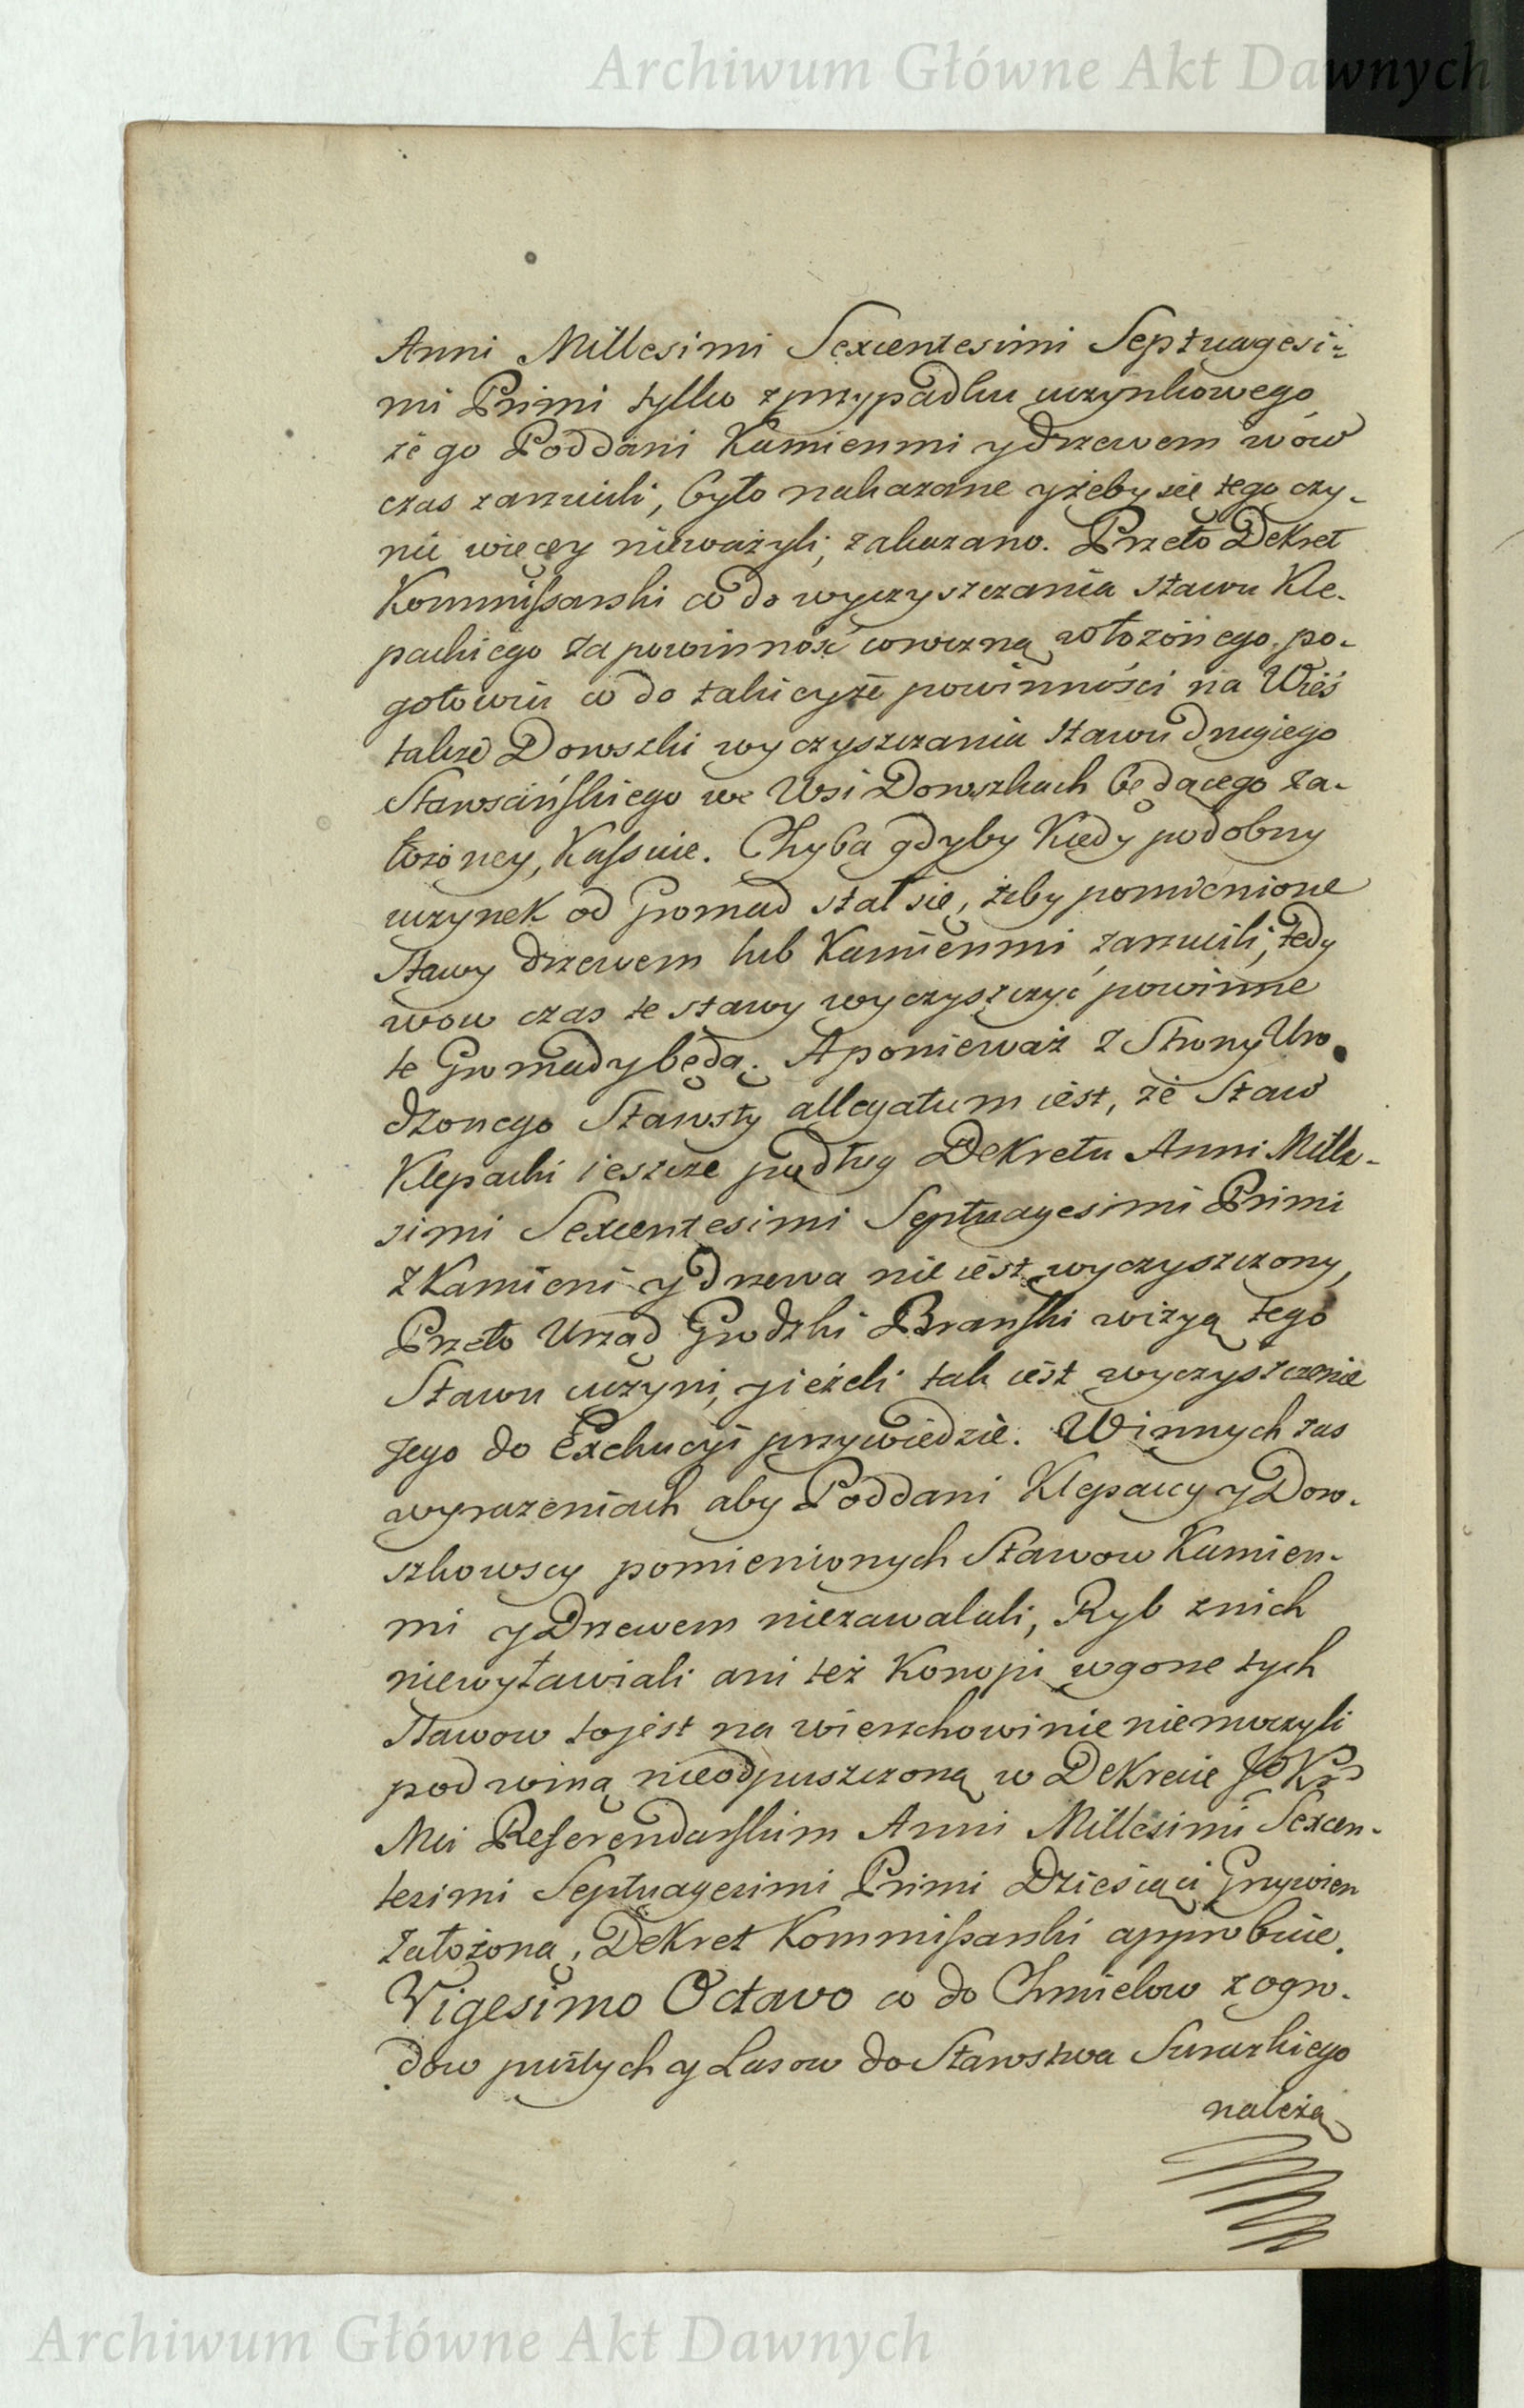 Archiwum Główne Akt Dawnych
Anni Millesimi Sexcentesimi Septuagesi=
mi Primi tylko z przypadku uczynkowego
że go Poddani Kamienmi y drzewem wów
czas zarzucili, było nakazane y żeby się tego czy-
nić więcey nieważyli, zakazano. Przeto Dekret
Kommissarski co do wyczyszczania stawu Kle-
packiego za powinność coroczną włożonego, po-
gotowiu co do takieyże powinności na Wieś
także Dowszki wyczyszczania stawu drugiego
Starościńskiego we Wsi Dowszkach będącego za-
łożoney, Kassuie. Chyba gdyby Kiedy podobny
uczynek od Gromad stał się, żeby pomienione
stawy drzewem lub Kamienmi zarzucili, tedy
wow czas te stawy wyczyszczyć powinne
te Gromady będą. A ponieważ z Strony Uro-
dzonego Starosty allegatum iest, że Staw
Klepacki ieszcze podług Dekretu Anni Mille-
simi Sexcentesimi Septuagesimi Primi
z Kamieni y drzewa nie iest wyczyszczony,
Przeto Urząd Grodzki Branski wizyą tego
Stawu uczyni, y ieżeli tak iest wyczyszczenie
Jego do Exekucyi przywiedzie. W innych zas
wyrazeniach aby Poddani Klepaccy y Dow-
szkowscy pomienionych Stawow Kamien-
mi y Drzewem niezawalali, Ryb znich
niewyławiali ani też Konopi wgorze tych
stawow to jest na wierzchowinie niemoczyli
pod winą nieodpuszczoną w Dekrecie JoKr
Mci Referendarskim Anni Millesimi Sexcen-
tesimi Septuagesimi Primi Dziesiąci Grzywien
założoną, Dekret Kommissarski approbuie.
Vigesimo Octavo co do Chmielow z ogro-
dow pustych y Lasow do Starostwa Surazkiego
należą
Archiwum Główne Akt Dawnych